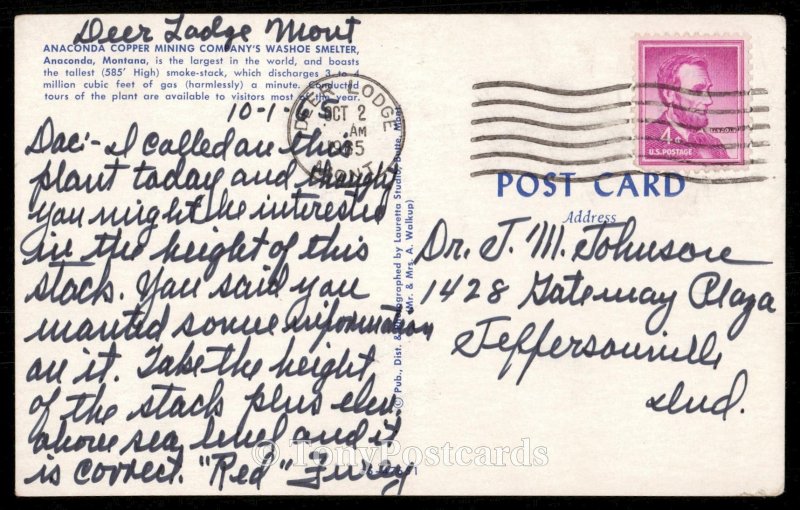 Deer Lodge Mont
ANACONDA COPPER MINING COMPANY'S WASHOE SMELTER,
Anaconda, Montana, is the largest in the world, and boasts
the tallest (585' High) smoke-stack, which discharges 3 to 4
million cubic feet of gas (harmlessly) a minute. Conducted
tours of the plant are available to visitors most of the year.
10-1-65
Doci-I called on this
plant today and thought
you might be interested
in the height of this
stack. You said you
wanted some information
on it. Take the height
of the stack plus elev.
above sea level and it
is correct. "Red" Furey
DEER LODGE
OCT 2
AM
1965
MONT.
© Pub., Dist. & Photographed by Lauretta Studio, Butte, Mont.
(Mr. & Mrs. A. Walkup)
LINCOLN
4¢
U.S. POSTAGE
POST CARD
Address
Dr. J. M. Johnson
1428 Gateway Plaza
Jeffersonville
Ind.
© TonyPostcards